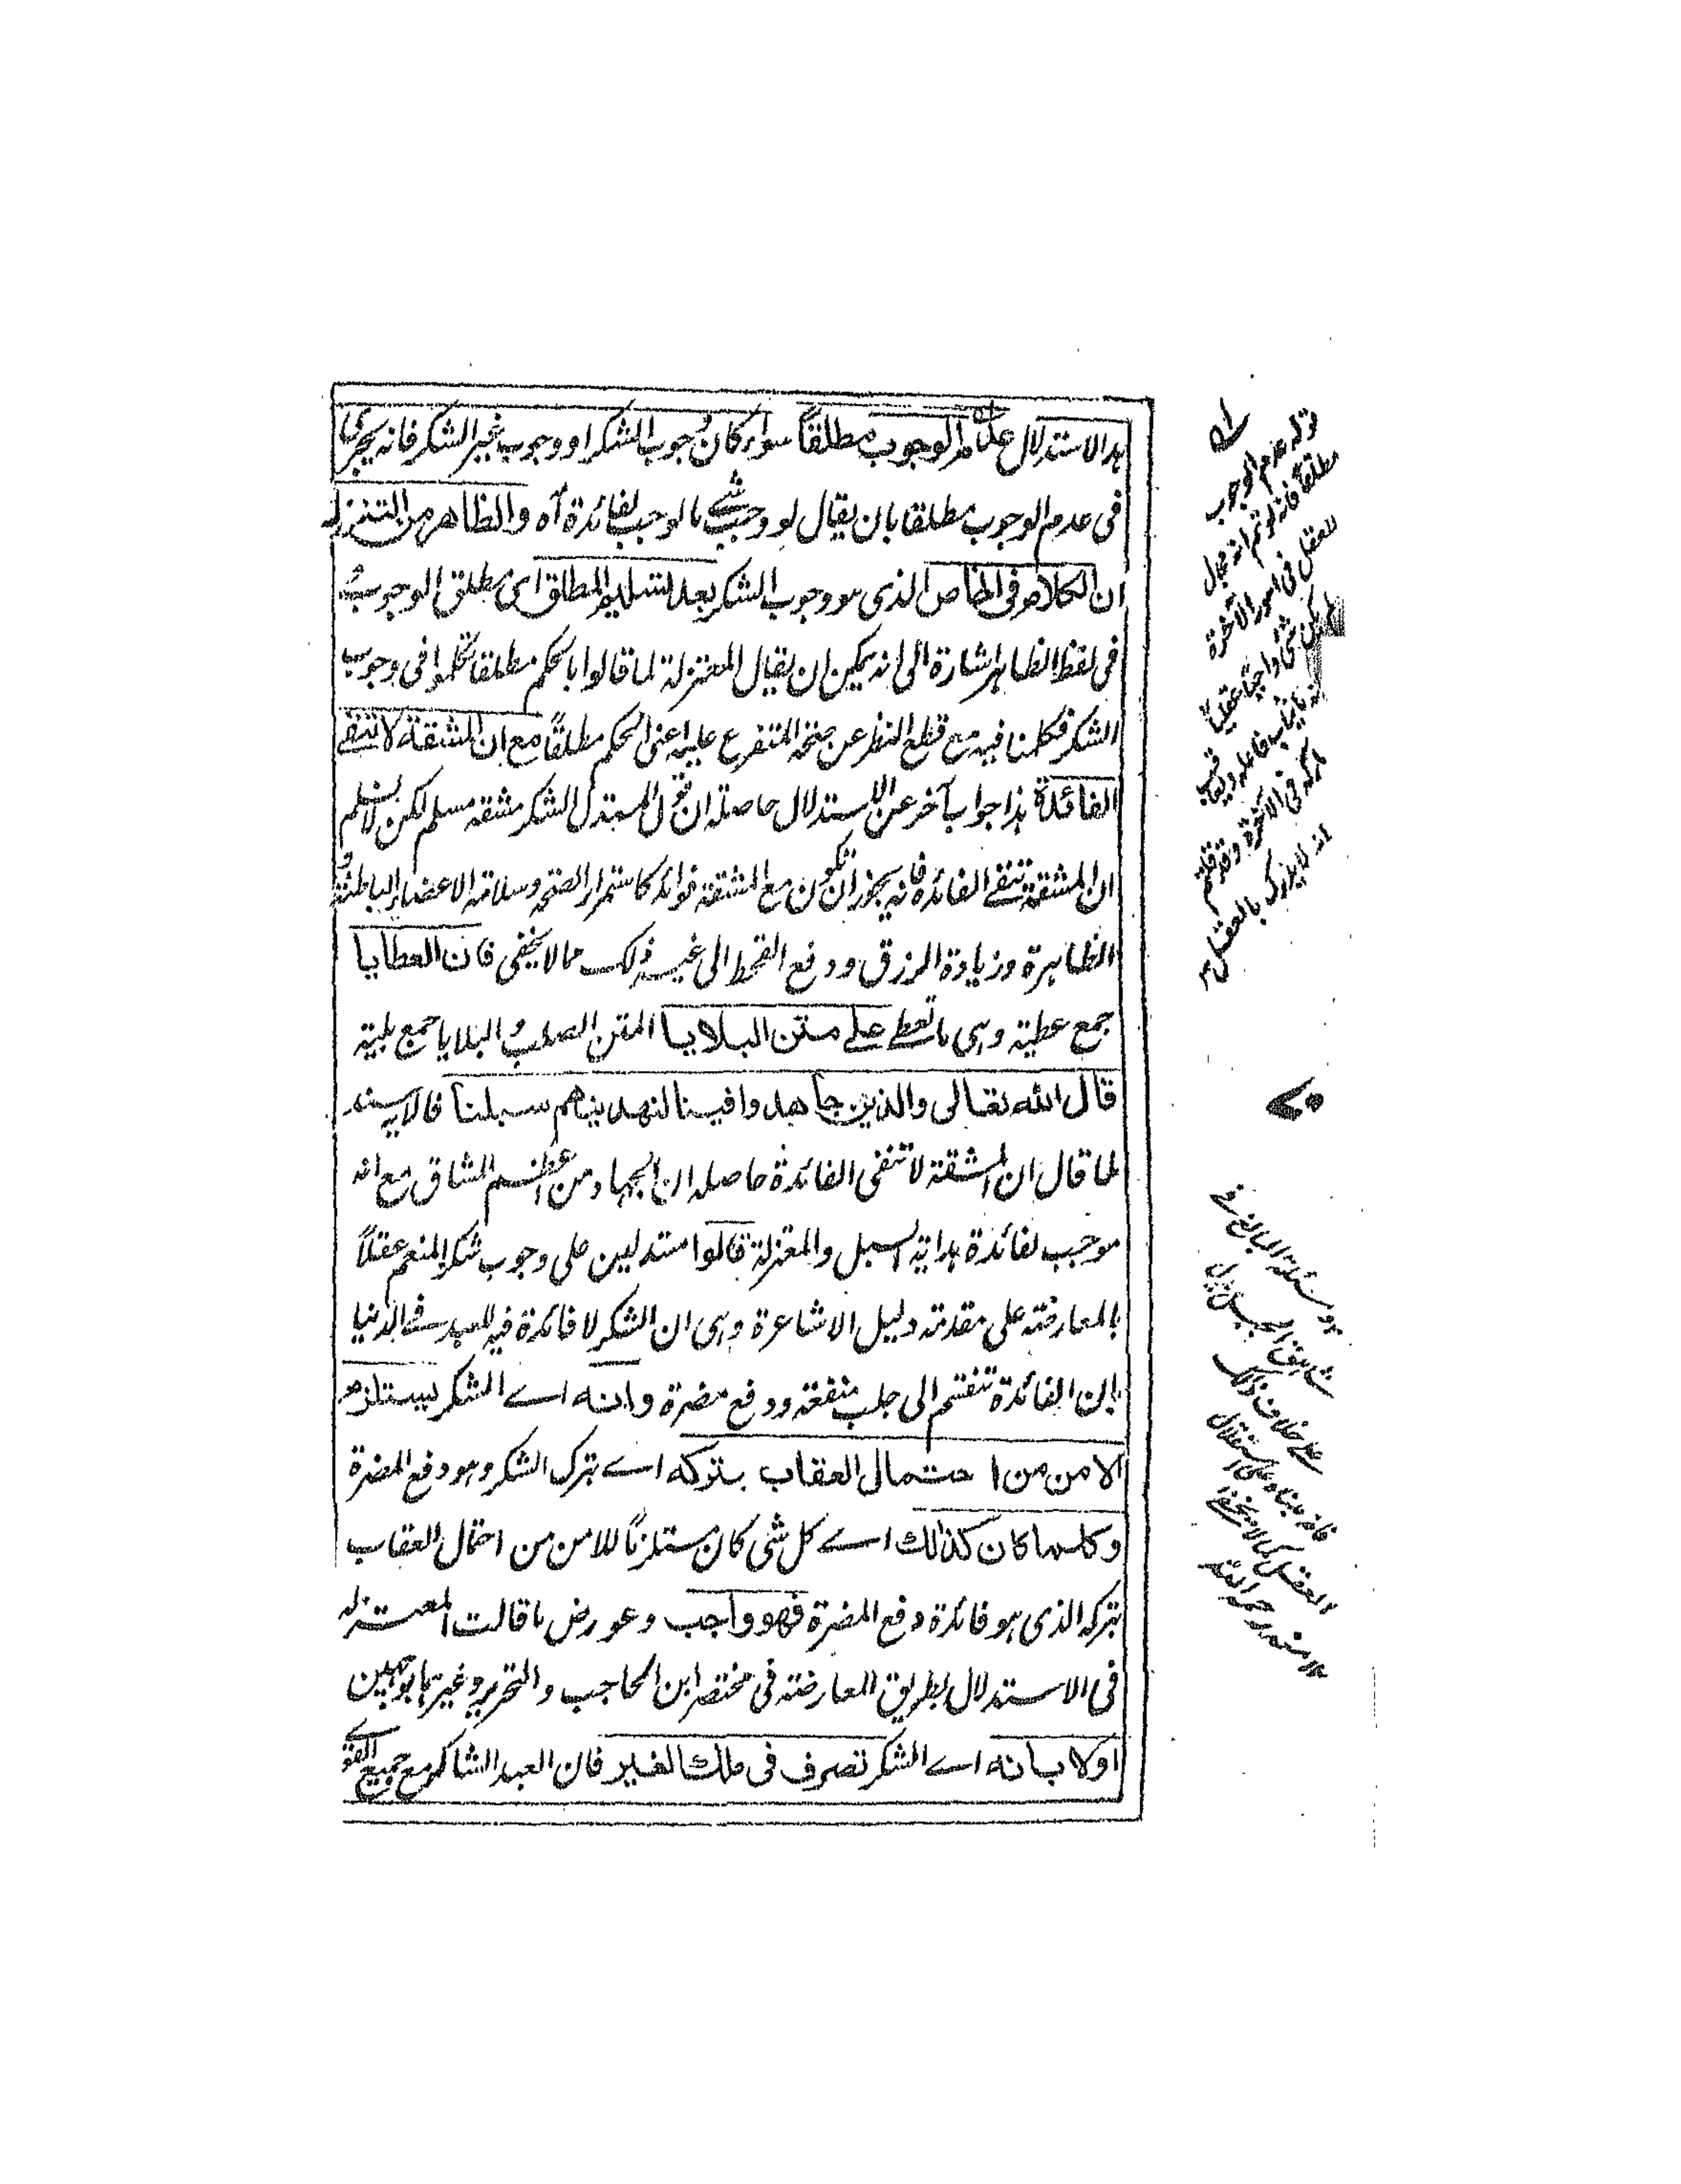 هذا الاستدلال على عدم الوجوب مطلقاً سواء كان وجوب الشكر او وجوب غير الشكر فانه يجري
فى عدم الوجوب مطلقا بان يقال لو وجب شىء ما لوجب لفائدة آه والظاهر من التنزل
ان الكلام فى الخاص الذى هو وجوب الشكر بعد تسليم المطلق اى مطلق الوجوب
فى لفظ الظاهر اشارة الى انه يمكن ان يقال المعتزلة لما قالوا بالحكم مطلقا تكلموا فى وجوب
الشكر فكلمنا فيه مع قطع النظر عن صحة المتفرع عليه اعنى الحكم مطلقاً مع ان المشقة لا تنفى
الفائدة هذا جواب آخر عن الاستدلال حاصله ان قول المستدل الشكر مشقة مسلم لكن لا نسلم
ان المشقة تنفى الفائدة فانه يجوز ان تكون مع المشقة فوائد كاستمرار الصحة وسلامة الاعضاء الباطنة و
الظاهرة وزيادة الرزق ودفع القحط الى غير ذلك مما لا يخفى فان العطايا
جمع عطية وهى ما تعطى على متن البلايا المتن الصلب و البلايا جمع بلية
قال الله تعالى والذين جاهدوا فينا لنهدينهم سبلنا فالآية سند
لما قال ان المشقة لا تنفى الفائدة حاصله ان الجهاد من اعظم المشاق مع انه
موجب لفائدة هداية السبل والمعتزلة قالوا مستدلين على وجوب شكر المنعم عقلاً
بالمعارضة على مقدمة دليل الاشاعرة وهى ان الشكر لا فائدة فيه للعبد فى الدنيا
بان الفائدة تنقسم الى جلب منفعة ودفع مضرة وانه اے الشكر يستلزم
الامن من احتمال العقاب بتركه اے بترك الشكر وهو دفع المضرة
وكلما كان كذالك اے كل شى كان مستلزماً للامن من احتمال العقاب
بتركه الذى هو فائدة دفع المضرة فهو واجب وعورض ما قالت المعتزله
فى الاستدلال بطريق المعارضة فى مختصر ابن الحاجب والتحرير وغيرها بوجهين
اولا بانه اے الشكر تصرف فى ملك الغير فان العبد الشاكر مع جميع القوى
قوله عدم الوجوب
مطلقاً فانه لو تم انه مجال
للعقل فى امور الآخرة
لم يكن شى واجباً عقلياً
تركه فى الآخرة وقد قلتم
انه لا يدرك بالعقل
على خلاف ذلك
العقل كما لا يخفى